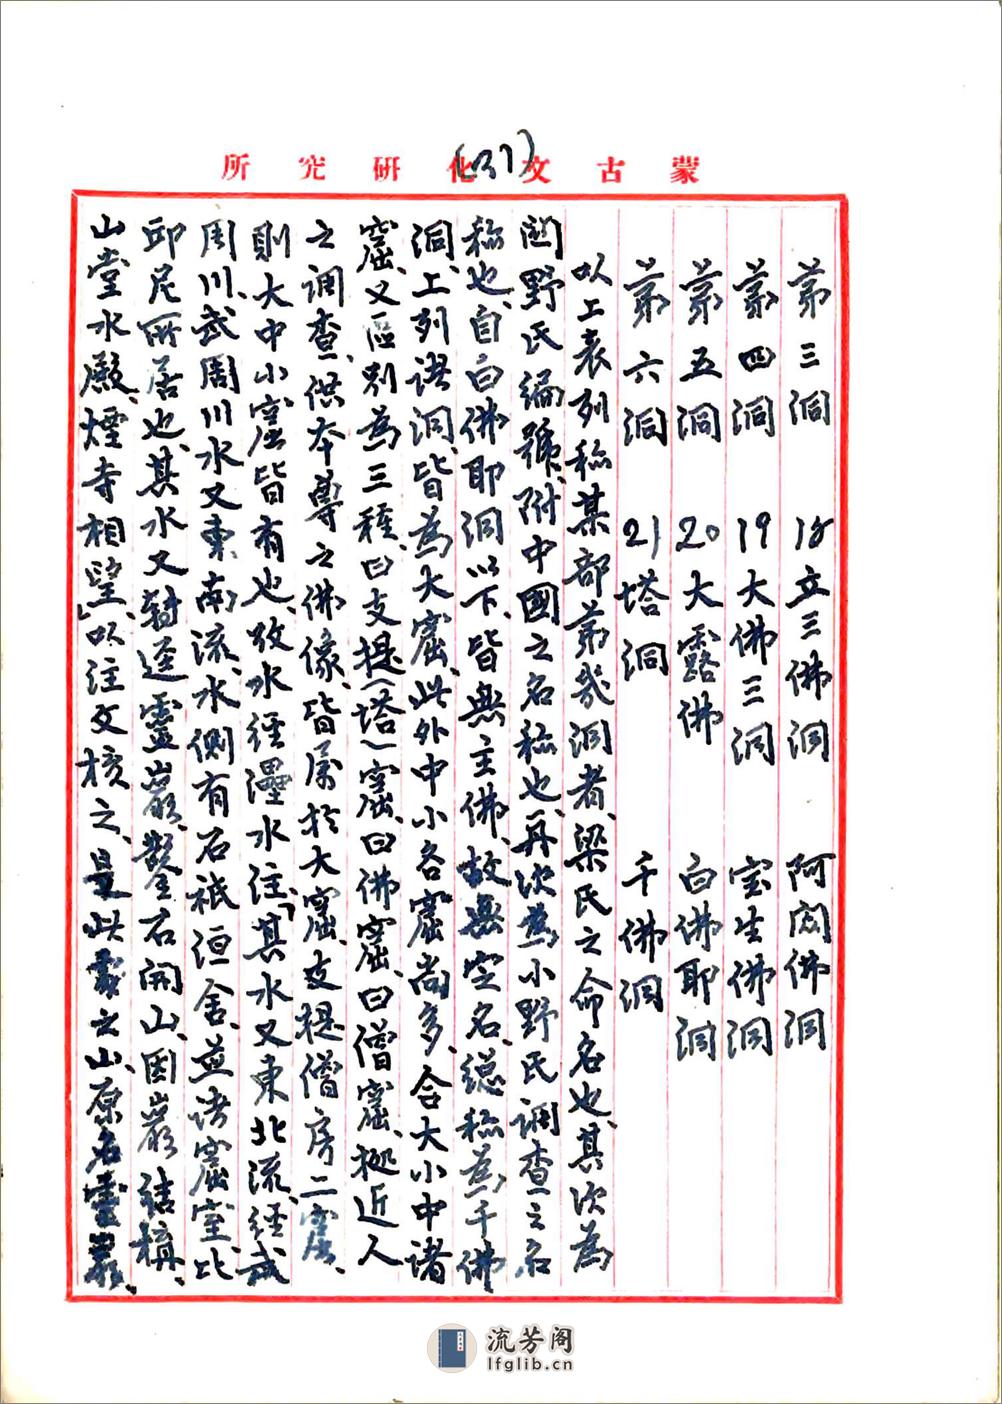 蒙古文化研究所
第三洞 18立三佛洞 阿閦佛洞
第四洞 19大佛三洞 宝生佛洞
第五洞 20大露佛 白佛耶洞
第六洞 21塔洞 千佛洞
以上表列称某部第几洞者、梁氏之命名也、其次為
関野氏編號、附中國之名称也、再次為小野氏調查之名
称也、自白佛耶洞以下、皆無主佛、故無定名、總称為千佛
洞、上列諸洞、皆為大窟、此外中小各窟尚多、合大小中諸
窟、又區别為三種、曰支提(塔)窟、曰佛窟、曰僧窟、拠近人
之調查、供本尊之佛像、皆属於大窟、支提僧房二窟、
則大中小窟皆有也、攷水經㶟水注、「其水又東北流、經武
周川、武周川水又東南流、水側有石祗洹舍、並諸窟室、比
邱尼所居也、其水又轉逕靈巖、鑿石開山、因巖結構、
山堂水殿、煙寺相望」、以注文核之、是此之山、原名靈巖、
流芳阁
lfglib.cn